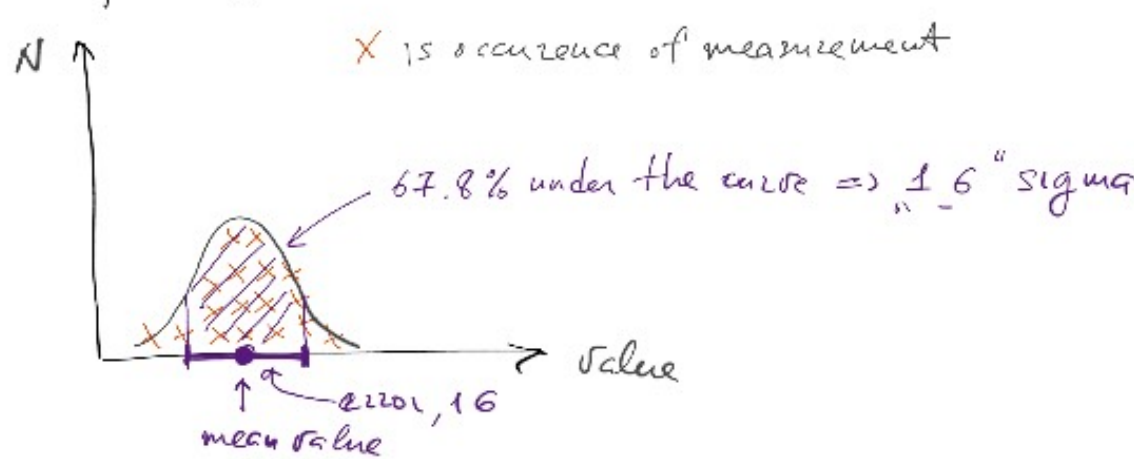 N
X is occurence of measurement
67.8% under the curve => „1 σ“ sigma
value
error, 1σ
mean value